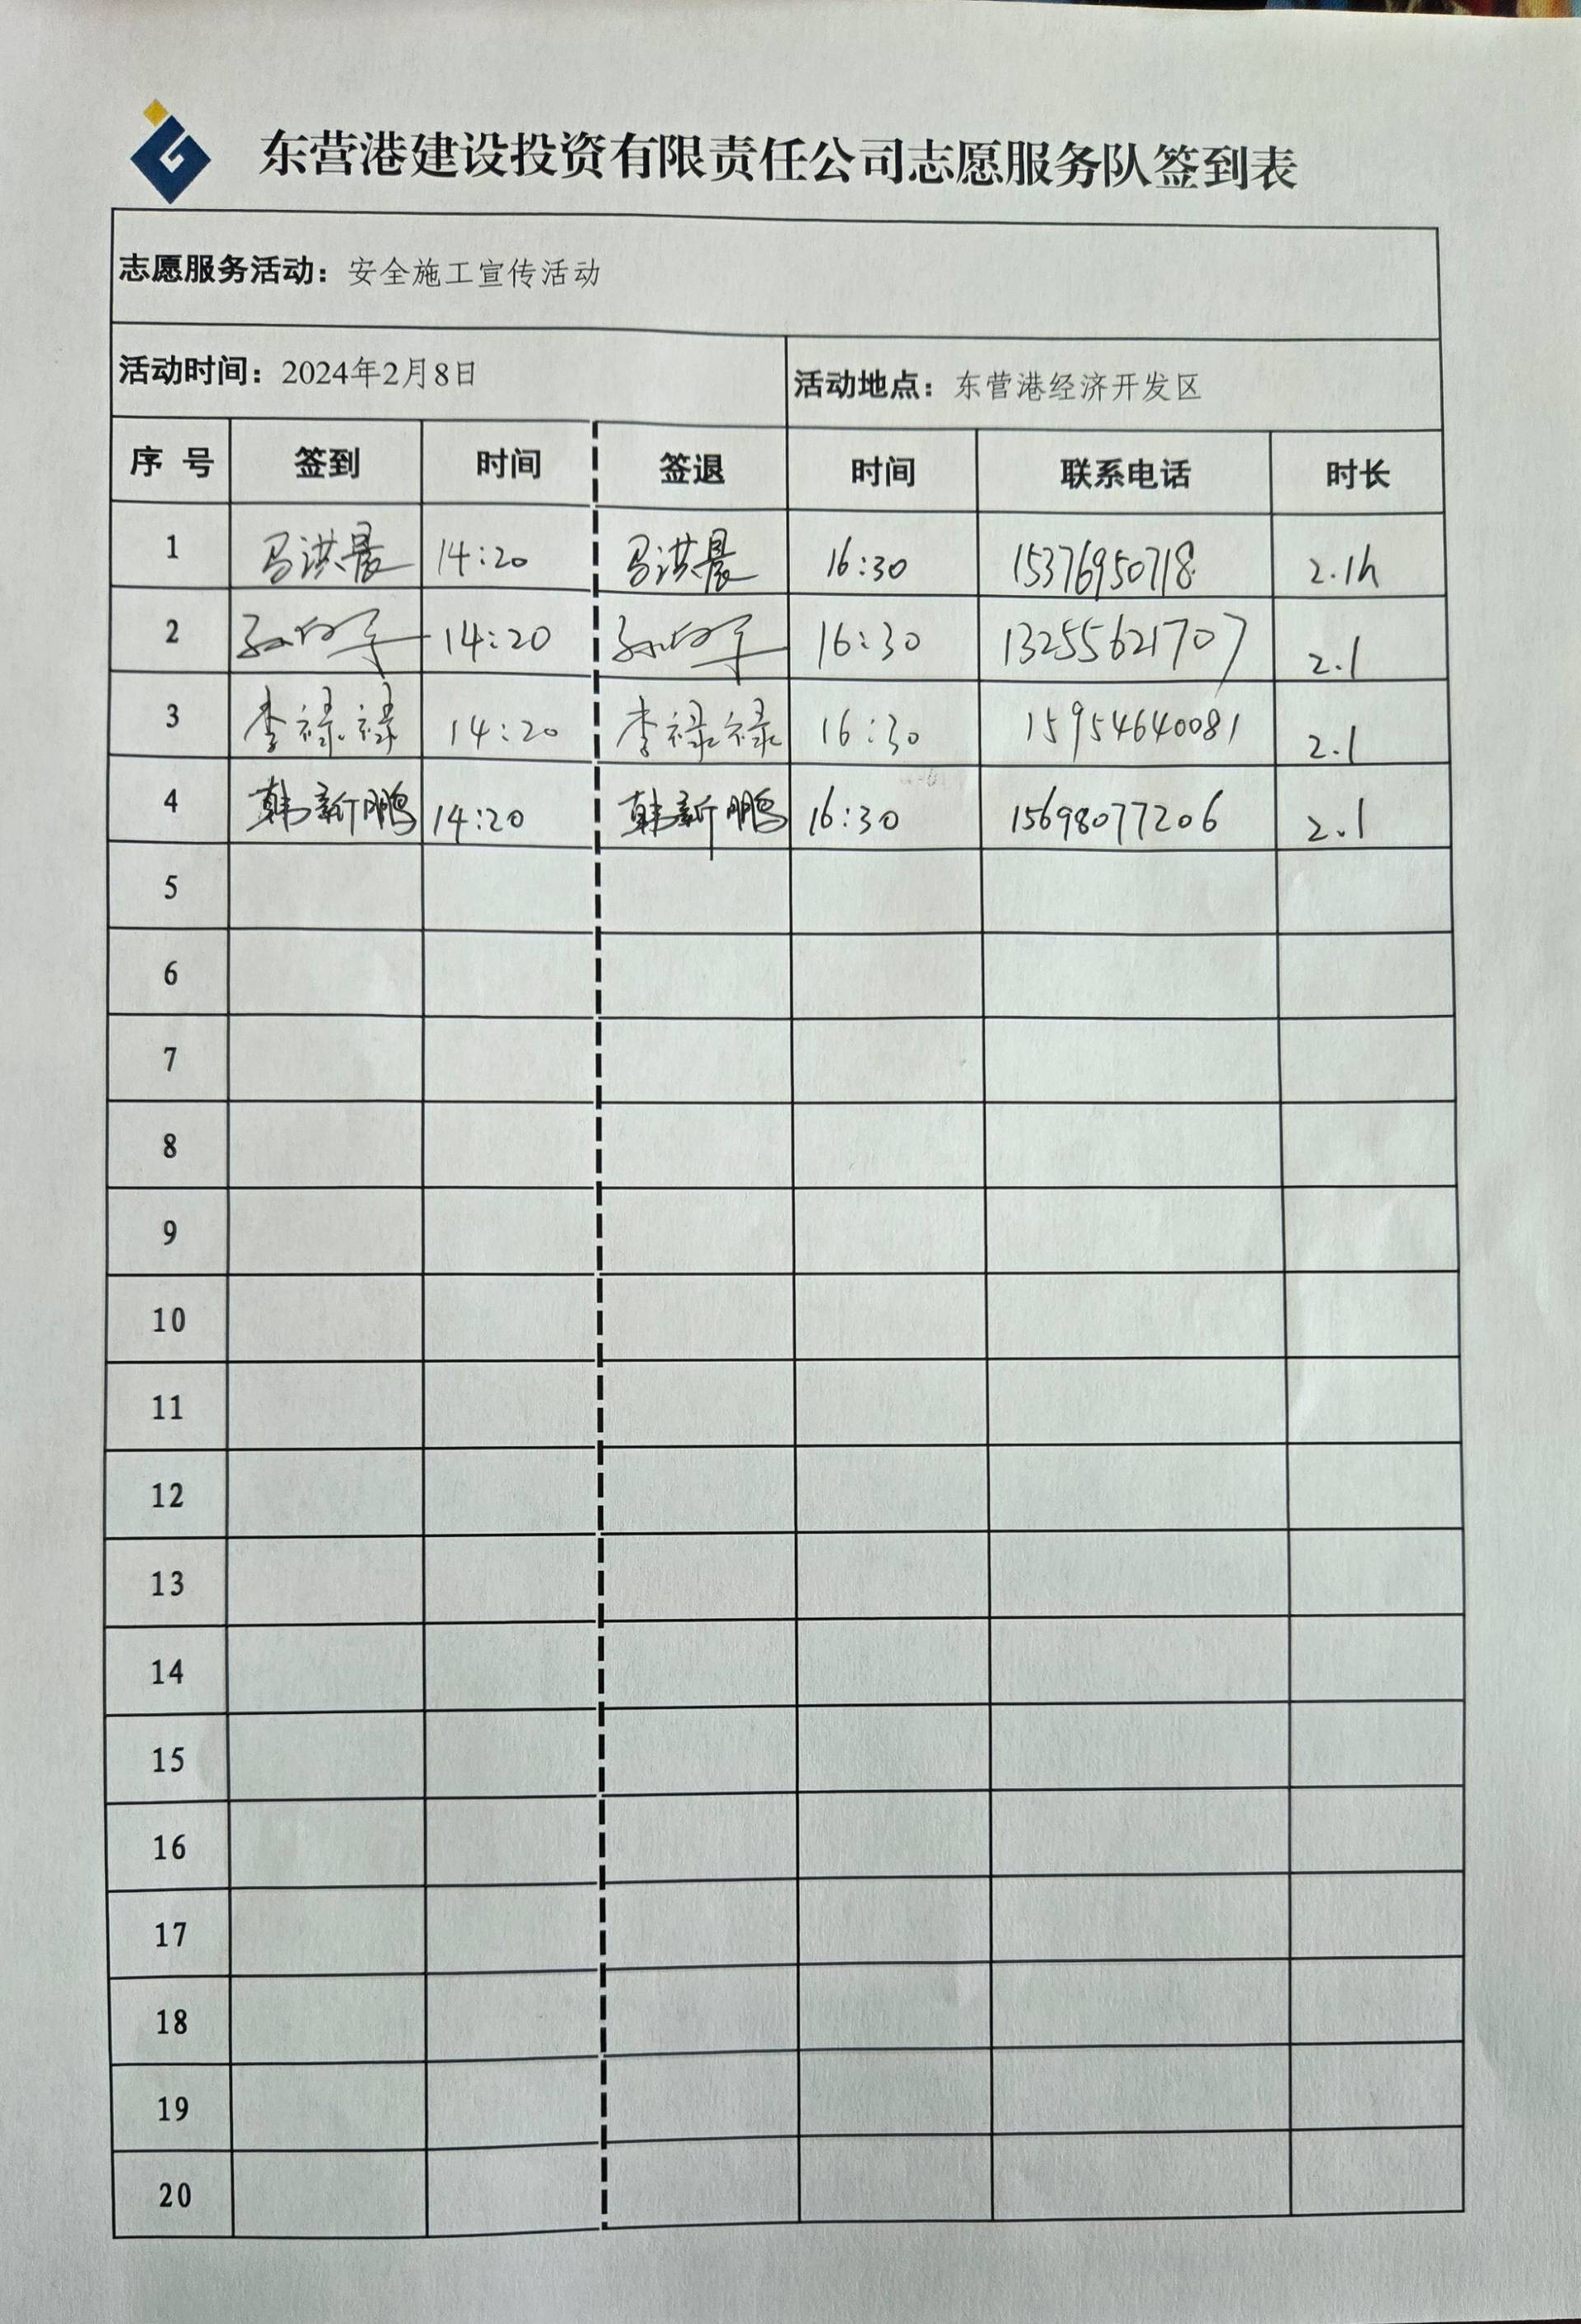 东营港建设投资有限责任公司志愿服务队签到表
志愿服务活动：安全施工宣传活动
活动时间：2024年2月8日 活动地点：东营港经济开发区
序号 签到 时间 签退 时间 联系电话 时长
1 马洪晨 14:20 马洪晨 16:30 15376950718 2.1h
2 14:20 16:30 13255621707 2.1
3 李禄禄 14:20 李禄禄 16:30 15954640081 2.1
4 韩新鹏 14:20 韩新鹏 16:30 15698077206 2.1
5
6
7
8
9
10
11
12
13
14
15
16
17
18
19
20